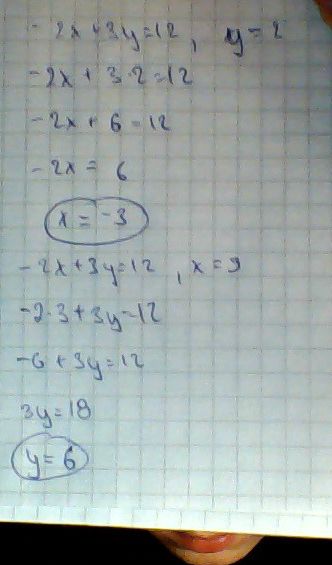 -2x+3y=12, y=2
-2x+3·2=12
-2x+6=12
-2x=6
x=-3
-2x+3y=12, x=3
-2·3+3y=12
-6+3y=12
3y=18
y=6